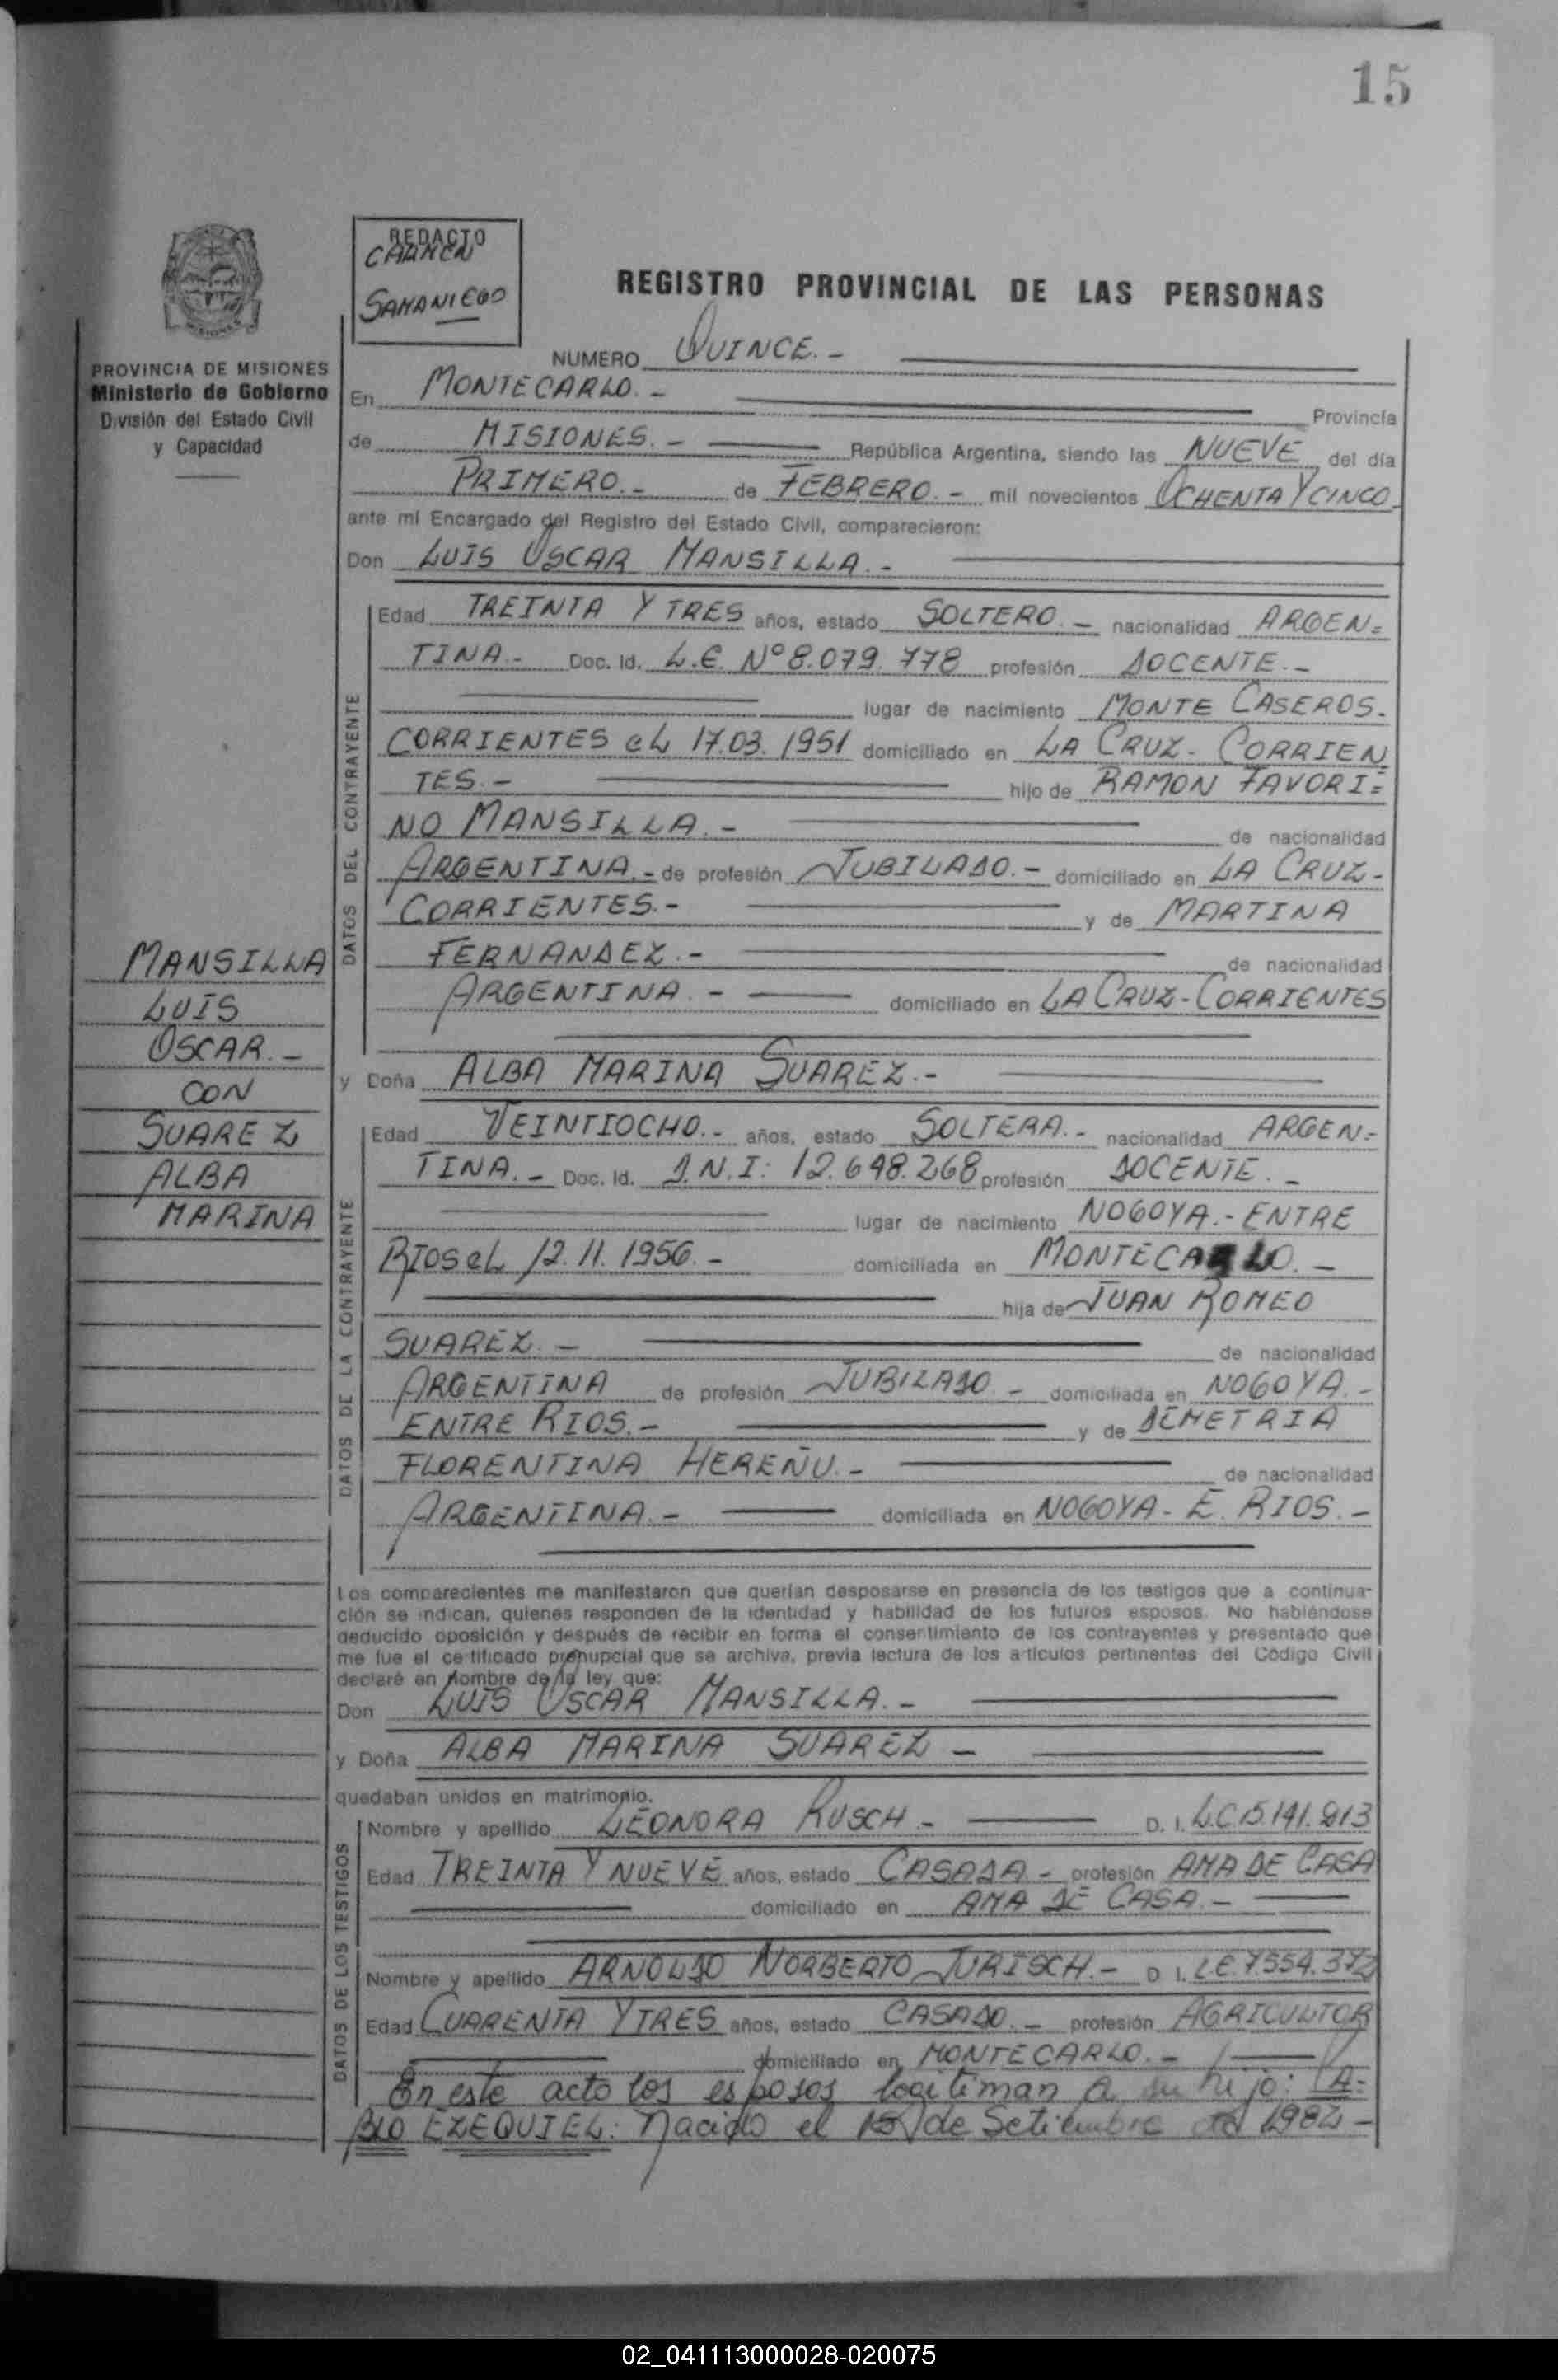 15
REDACTO
CARMEN
SAMANIEGO
REGISTRO PROVINCIAL DE LAS PERSONAS
PROVINCIA DE MISIONES
Ministerio de Gobierno
División del Estado Civil
y Capacidad
NUMERO QUINCE.-
En MONTECARLO.- Provincia
de MISIONES.- República Argentina, siendo las NUEVE del día
PRIMERO.- de FEBRERO.- mil novecientos OCHENTA Y CINCO
ante mí Encargado del Registro del Estado Civil, comparecieron:
Don LUIS OSCAR MANSILLA.-
DATOS DEL CONTRAYENTE
Edad TREINTA Y TRES años, estado SOLTERO.- nacionalidad ARGEN=
TINA.- Doc. Id. L.E. Nº 8.079.778 profesión DOCENTE.-
lugar de nacimiento MONTE CASEROS.
CORRIENTES EL 17.03.1951 domiciliado en LA CRUZ- CORRIEN
TES.- hijo de RAMON FAVORI=
NO MANSILLA.- de nacionalidad
ARGENTINA.- de profesión JUBILADO.- domiciliado en LA CRUZ-
CORRIENTES.- y de MARTINA
FERNANDEZ.- de nacionalidad
ARGENTINA.- domiciliado en LA CRUZ-CORRIENTES
MANSILLA
LUIS
OSCAR.-
CON
SUAREZ
ALBA
MARINA
y Doña ALBA MARINA SUAREZ.-
DATOS DE LA CONTRAYENTE
Edad VEINTIOCHO.- años, estado SOLTERA.- nacionalidad ARGEN=
TINA.- Doc. Id. D.N.I: 12.648.268 profesión DOCENTE.-
lugar de nacimiento NOGOYA.-ENTRE
RIOS EL 12.11.1956.- domiciliada en MONTECARLO.-
hija de JUAN ROMEO
SUAREZ.- de nacionalidad
ARGENTINA de profesión JUBILADO.- domiciliada en NOGOYA.-
ENTRE RIOS.- y de DEMETRIA
FLORENTINA HEREÑU.- de nacionalidad
ARGENTINA.- domiciliada en NOGOYA- E. RIOS.-
Los comparecientes me manifestaron que querían desposarse en presencia de los testigos que a continua-
ción se indican, quienes responden de la identidad y habilidad de los futuros esposos. No habiéndose
deducido oposición y después de recibir en forma el consentimiento de los contrayentes y presentado que
me fue el certificado prenupcial que se archiva, previa lectura de los artículos pertinentes del Código Civil
declaré en nombre de la ley que:
Don LUIS OSCAR MANSILLA.-
y Doña ALBA MARINA SUAREZ -
quedaban unidos en matrimonio.
DATOS DE LOS TESTIGOS
Nombre y apellido LEONORA RUSCH.- D. I. L.C.5.141.813
Edad TREINTA Y NUEVE años, estado CASADA- profesión AMA DE CASA
domiciliado en AMA DE CASA.-
Nombre y apellido ARNOLDO NORBERTO JURISCH.- D. I. L.E.7.554.372
Edad CUARENTA Y TRES años, estado CASADO.- profesión AGRICULTOR
domiciliado en MONTECARLO.-
En este acto los esposos legitiman a su hijo: PA=
BLO EZEQUIEL: Nacido el 15 de Setiembre de 1984-
02_041113000028-020075